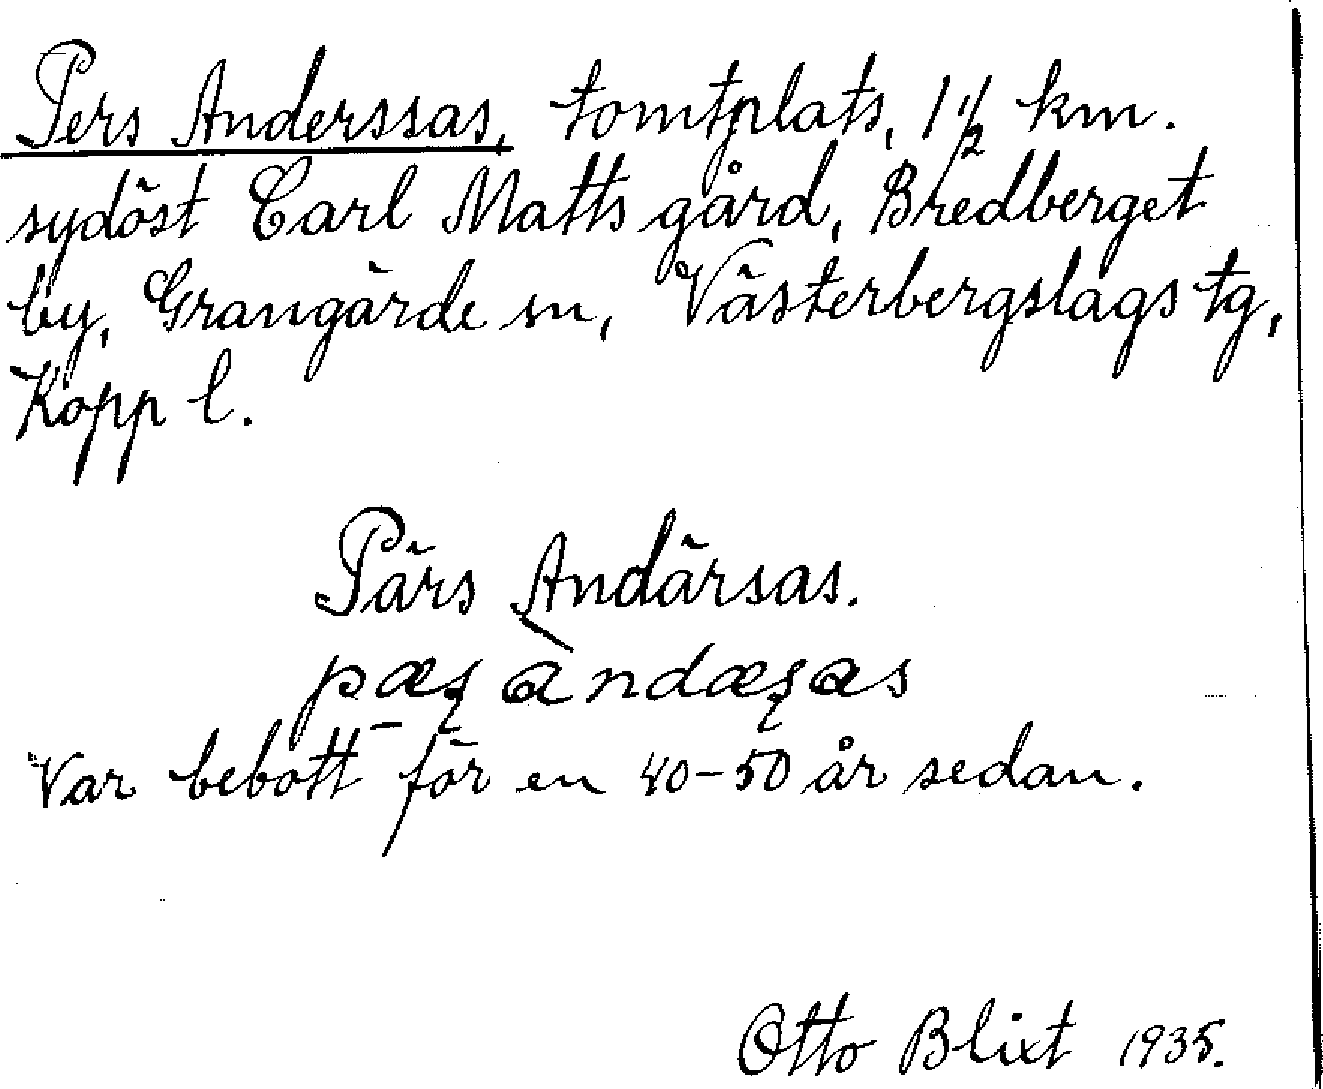 Pers Anderssas, tomtplats, 1 1/2 km.
sydöst Carl Matts gård, Bredberget
by, Grangärde sn, Västerbergslags tg,
Kopp l.
Pärs Andärsas.
pæʂ àndæʂas
Var bebott för en 40-50 år sedan.
Otto Blixt 1935.